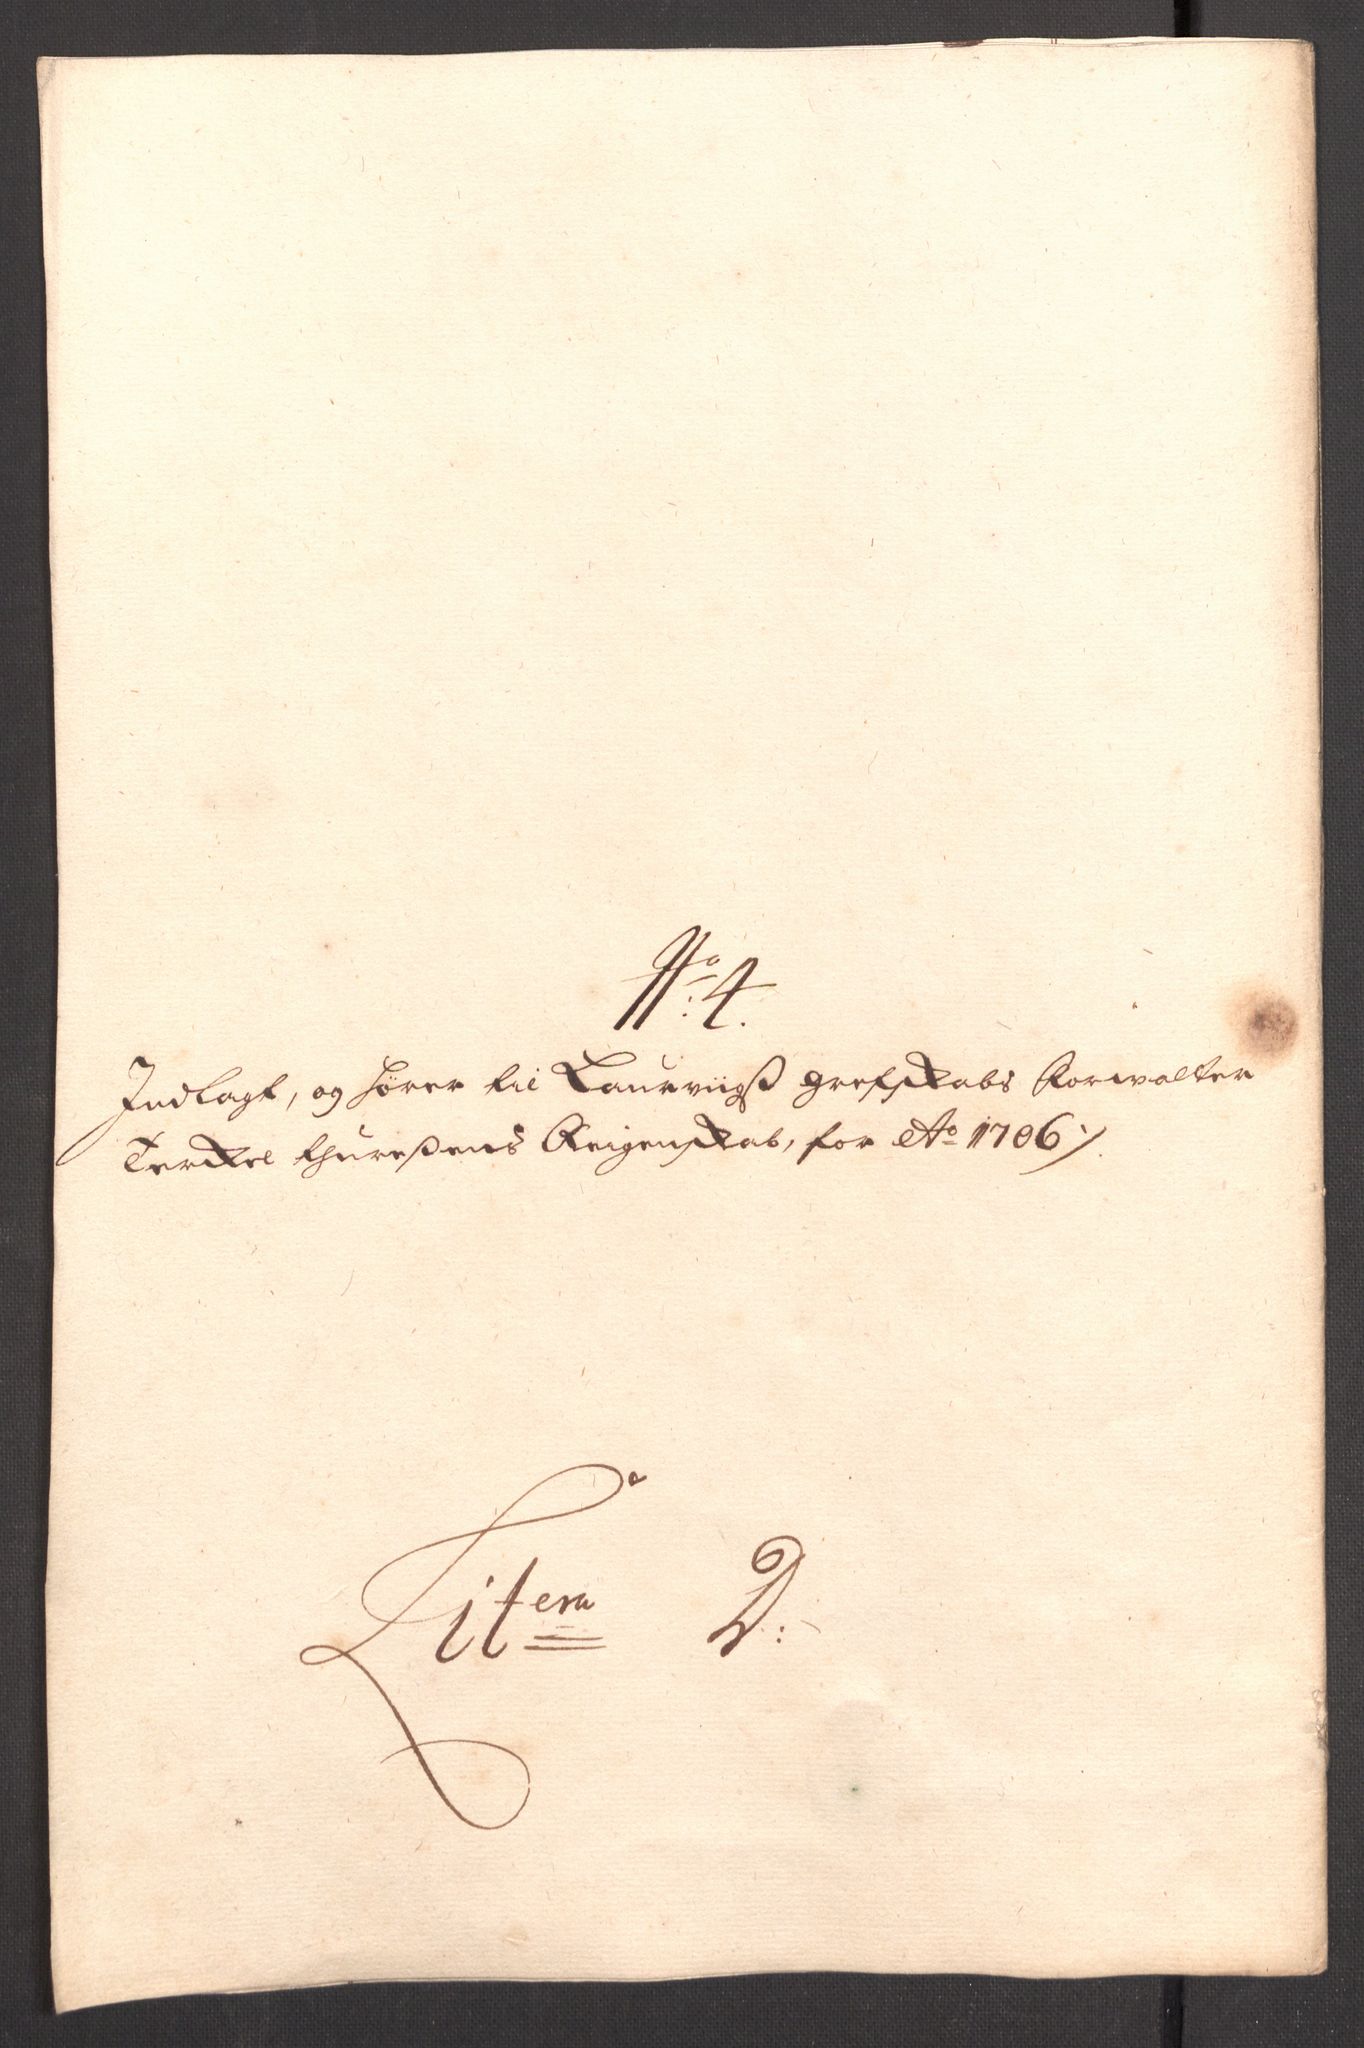 No. 4.
Indlagt, og hører til Laurviigß grefskabs Forwalter
Terckel thureßens Reigenskab, for Ao 1706 ⁒
Litera D: